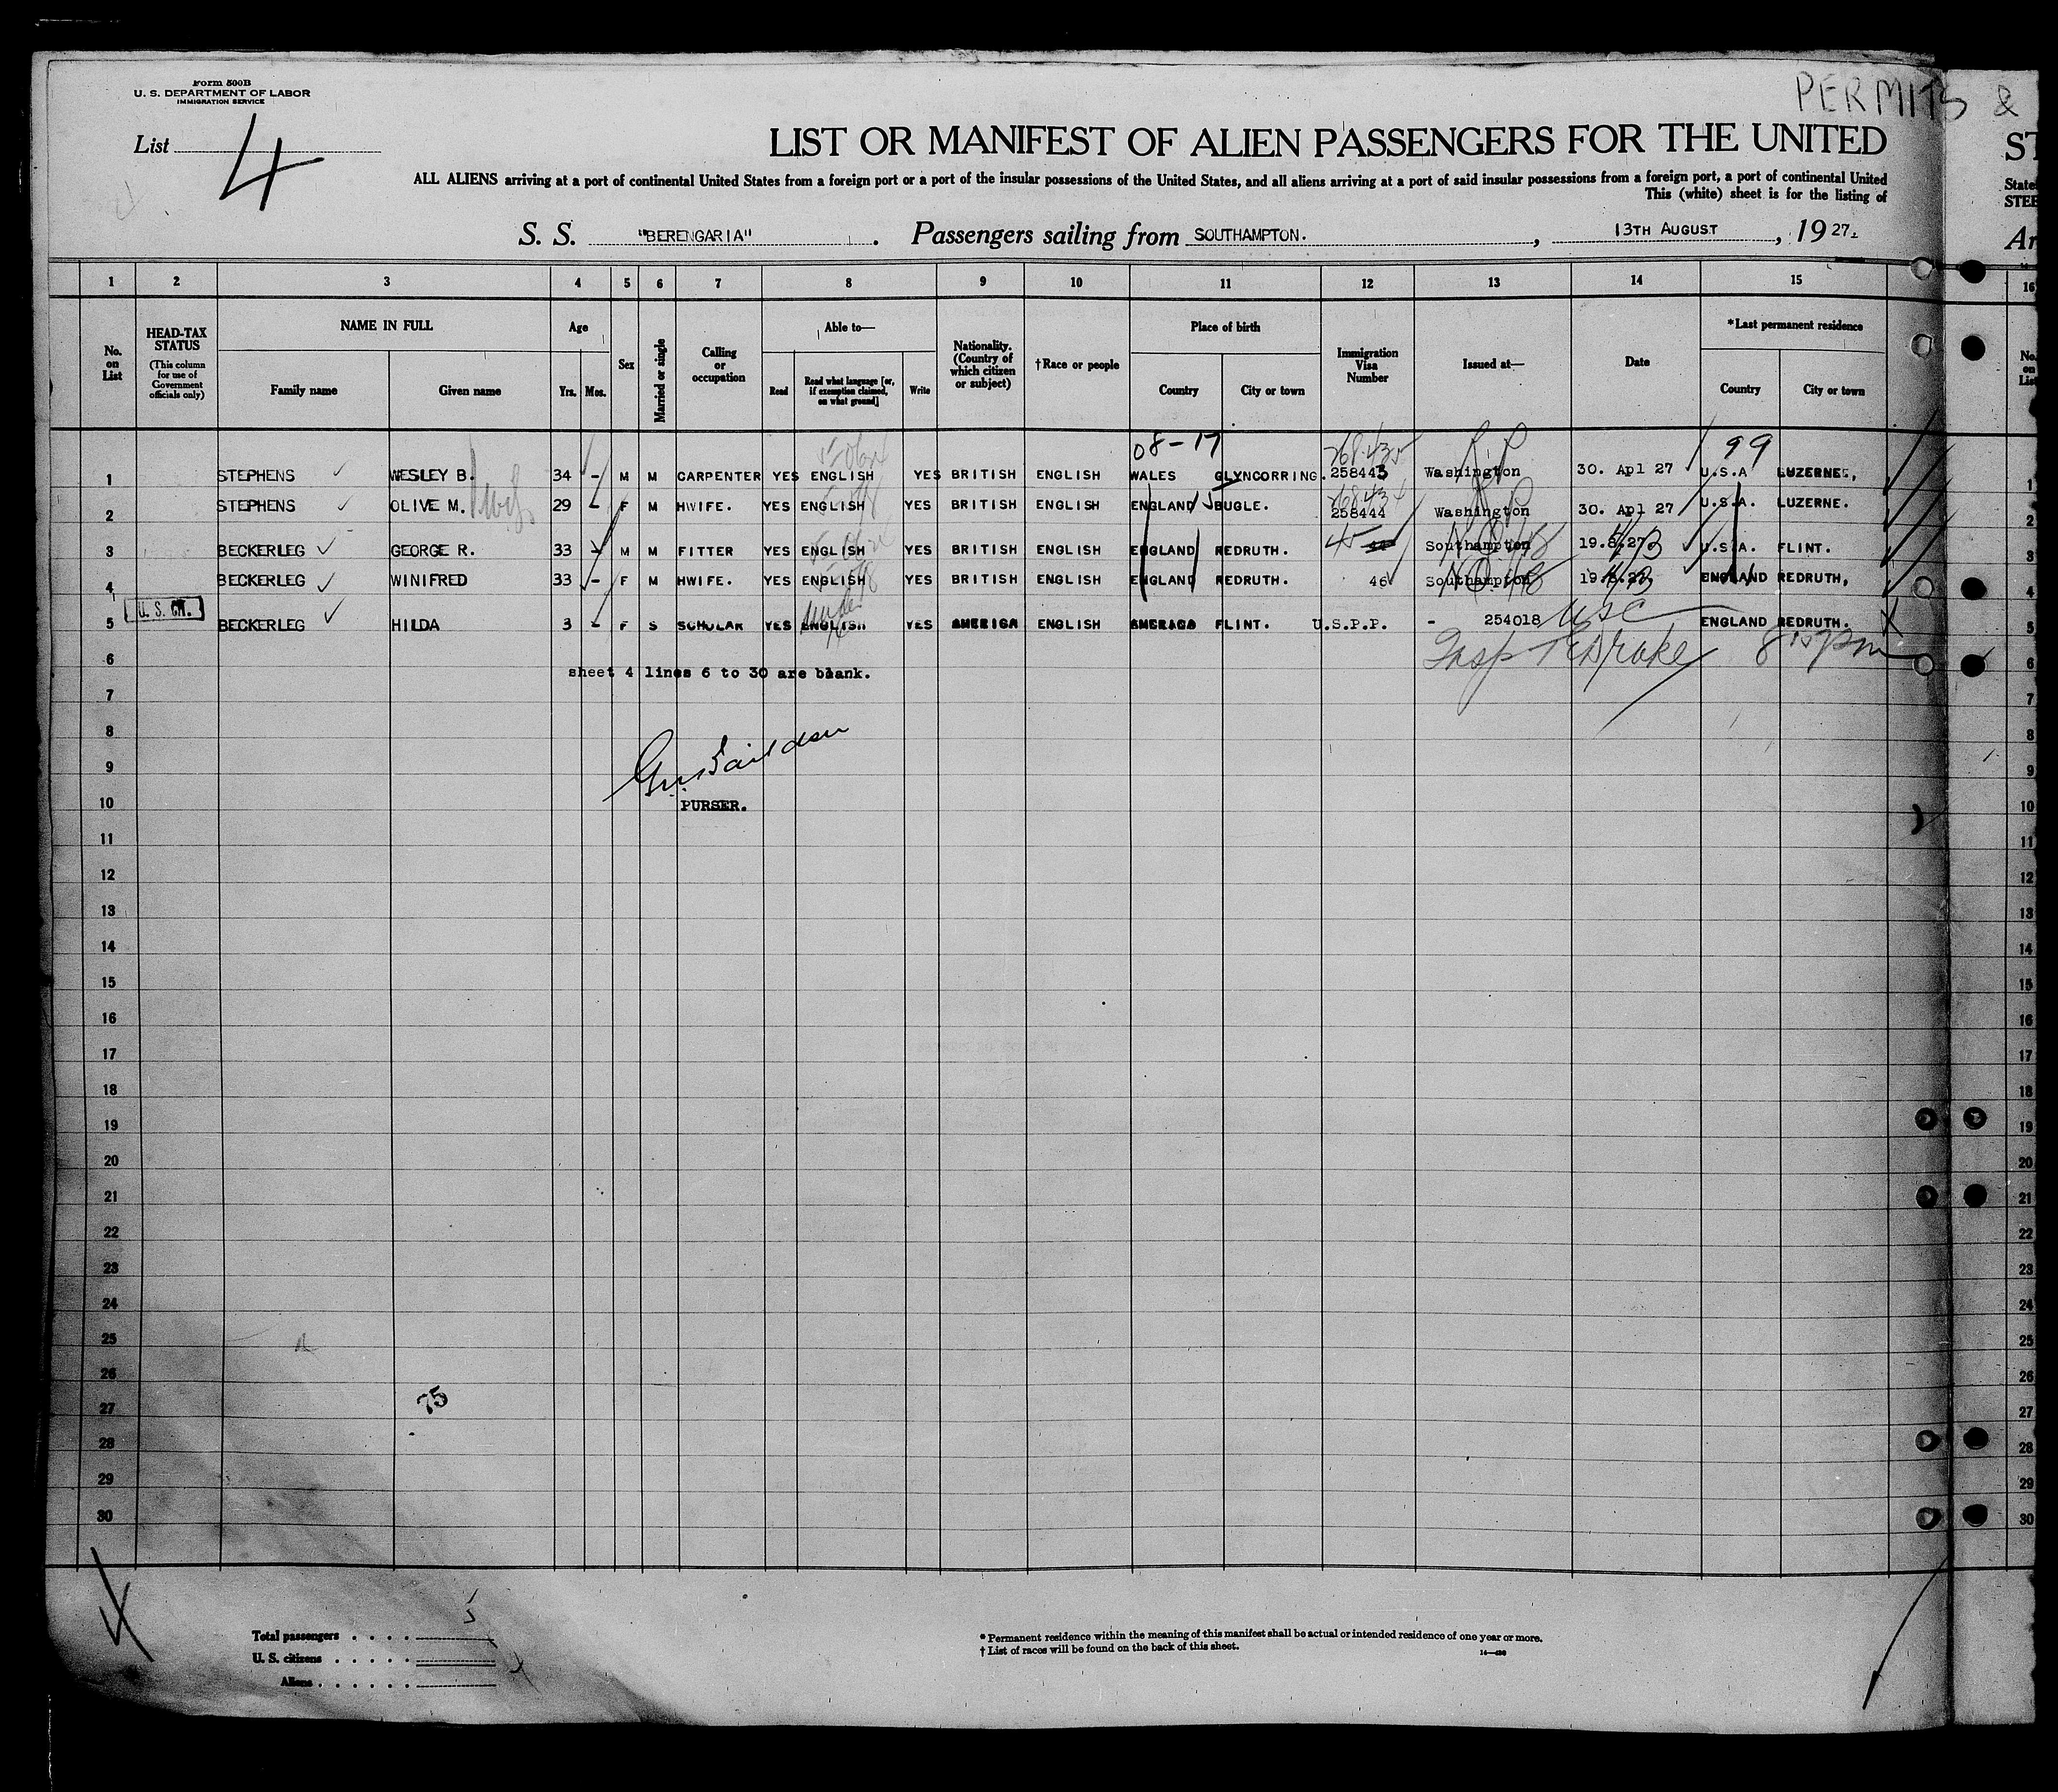 Form 500B
U. S. DEPARTMENT OF LABOR
IMMIGRATION SERVICE
PERMITS &
List 4
LIST OR MANIFEST OF ALIEN PASSENGERS FOR THE UNITED
ST
ALL ALIENS arriving at a port of continental United States from a foreign port or a port of the insular possessions of the United States, and all aliens arriving at a port of said insular possessions from a foreign port, a port of continental United
State
This (white) sheet is for the listing of
STEE
S. S. "BERENGARIA". Passengers sailing from SOUTHAMPTON., 13TH AUGUST, 1927.
Ar
1 2 3 4 5 6 7 8 9 10 11 12 13 14 15 16
No. on List
HEAD-TAX STATUS (This column for use of Government officials only)
NAME IN FULL
Family name Given name
Age
Yrs. Mos.
Sex
Married or single
Calling or occupation
Able to—
Read Read what language [or, if exemption claimed, on what ground] Write
Nationality. (Country of which citizen or subject)
†Race or people
Place of birth
Country City or town
Immigration Visa Number
Issued at—
Date
*Last permanent residence
Country City or town
No. on List
08-17 268435 99
1 STEPHENS WESLEY B. 34 - M M CARPENTER YES ENGLISH YES BRITISH ENGLISH WALES GLYNCORRING. 258443 Washington 30. Apl 27 U.S.A LUZERNE, 1
268434
2 STEPHENS OLIVE M. wife 29 - F M HWIFE. YES ENGLISH YES BRITISH ENGLISH ENGLAND BUGLE. 258444 Washington 30. Apl 27 U.S.A. LUZERNE. 2
3 BECKERLEG GEORGE R. 33 - M M FITTER YES ENGLISH YES BRITISH ENGLISH ENGLAND REDRUTH. 45 Southampton U.S.A. FLINT. 3
4 BECKERLEG WINIFRED 33 - F M HWIFE. YES ENGLISH YES BRITISH ENGLISH ENGLAND REDRUTH. 46 Southampton ENGLAND REDRUTH, 4
U.S. CIT.
5 BECKERLEG HILDA 3 - F S SCHOLAR YES ENGLISH YES AMERICA ENGLISH AMERICA FLINT. U.S.P.P. - 254018 USC ENGLAND REDRUTH. 5
6 sheet 4 lines 6 to 30 are blank. Insp Drake 6
7 7
8 8
9 9
10 PURSER. 10
11 11
12 12
13 13
14 14
15 15
16 16
17 17
18 18
19 19
20 20
21 21
22 22
23 23
24 24
25 25
26 26
27 75 27
28 28
29 29
30 30
4
5
Total passengers
U. S. citizens
Aliens
* Permanent residence within the meaning of this manifest shall be actual or intended residence of one year or more.
† List of races will be found on the back of this sheet.